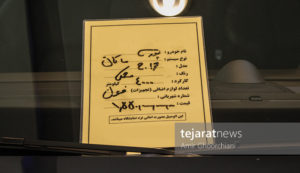 نام خودرو : پورشه ماکان
نوع سیستم :
مدل : ۲۰۱۶
رنگ : مشکی
کارکرد : ۴۰۰۰۰
تعداد لوازم اضافی (تجهیزات) : فول
شماره شهربانی :
قیمت :
این اتومبیل بصورت امانی نزد نمایشگاه میباشد.
tejaratnews
Amir Ghoorchiani